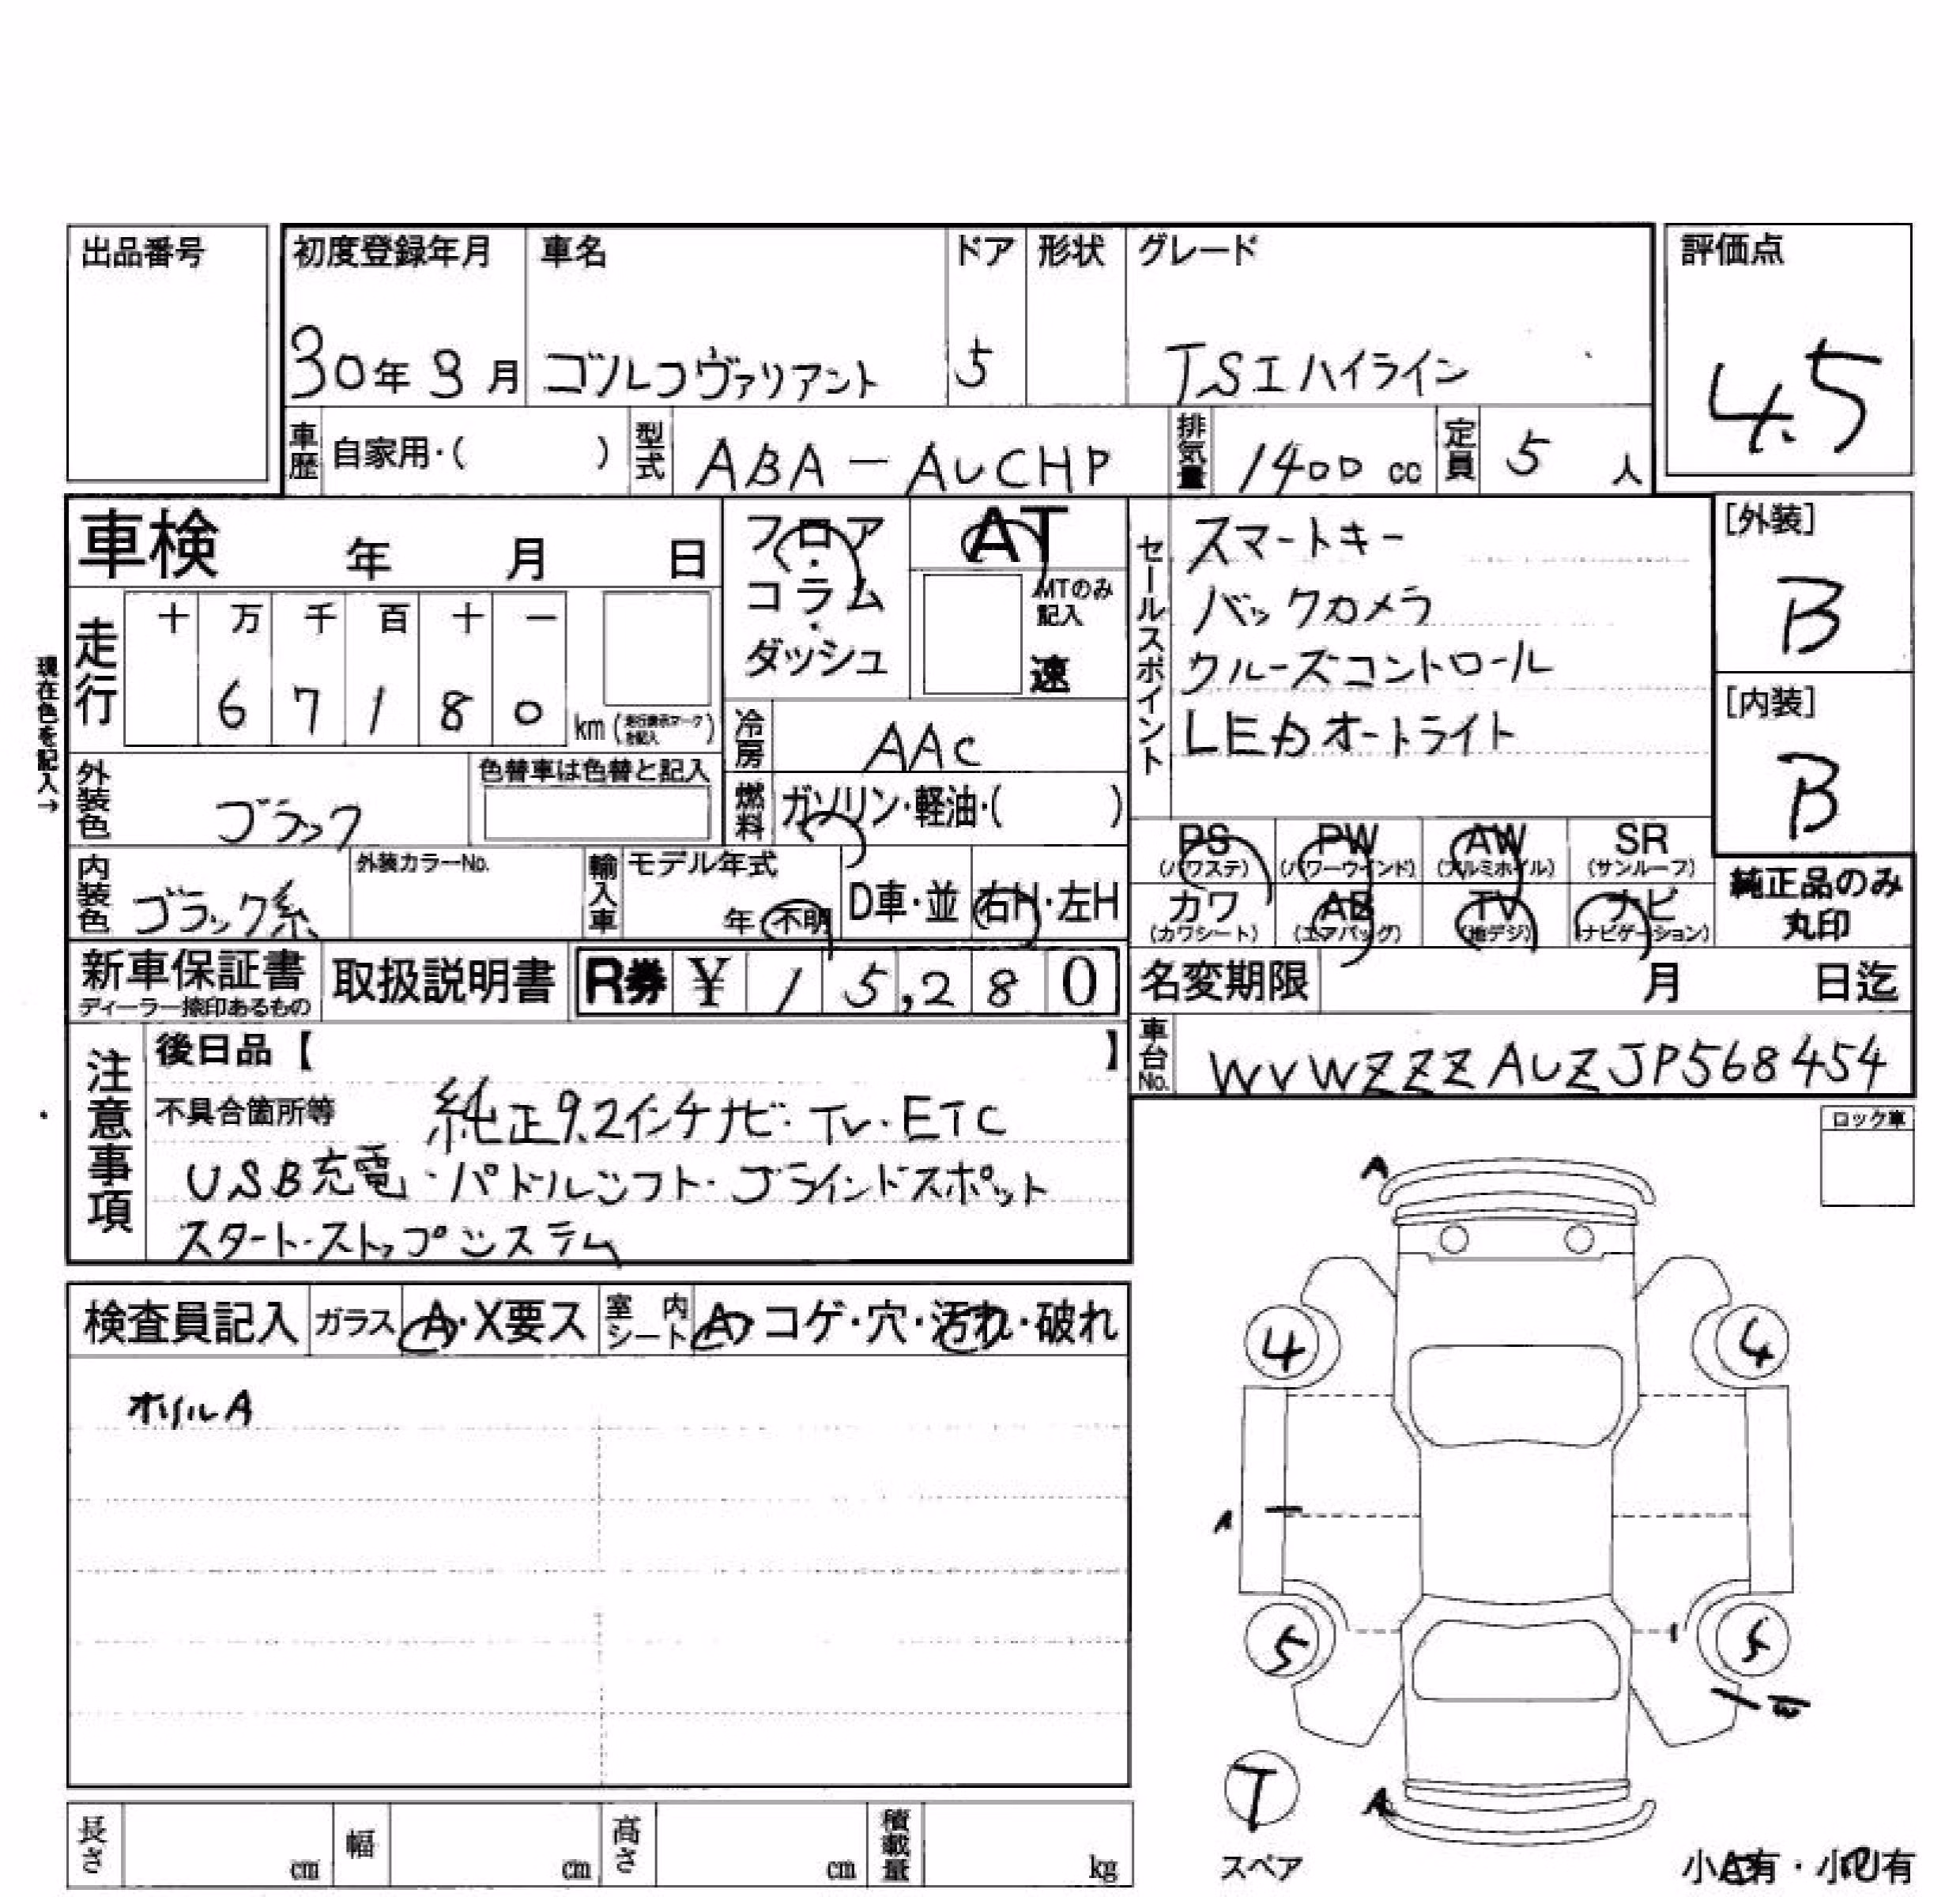 出品番号
初度登録年月 車名 ドア 形状 グレード 評価点
30年 月 ゴルフヴァリアント 5 TSIハイライン 4.5
車歴 自家用・( ) 型式 ABA-AUCHP 排気量 1400 cc 定員 5 人
車検 年 月 日
フロア・コラム・ダッシュ
AT
MTのみ記入
速
セールスポイント
スマートキー
バックカメラ
クルーズコントロール
LEDオートライト
[外装]
B
[内装]
B
現在色を記入→
走行 十 万 千 百 十 一
6 7 1 8 0 km
冷房 AAC
外装色 ブラック 色替車は色替と記入
燃料 ガソリン・軽油・( )
内装色 ブラック系 外装カラーNo. 輸入車 モデル年式 年 不明 D車・並 右H・左H
PS (パワステ) PW (パワーウインド) AW (アルミホイル) SR (サンルーフ)
カワ (カワシート) AB (エアバッグ) TV (地デジ) ナビ (ナビゲーション)
純正品のみ
丸印
新車保証書 ディーラー捺印あるもの 取扱説明書 R券 ¥ 15,280
名変期限 月 日迄
車台No. WVWZZZAUZJP568454
注意事項
後日品【 】
不具合箇所等 純正9.2インチナビ・TV・ETC
USB充電・パドルシフト・ブラインドスポット
スタート・ストップシステム
ロック車
検査員記入 ガラス A・X要ス 室内シート A・コゲ・穴・汚れ・破れ
ホイルA
A
4 4
A
5 5
W
T
A
スペア
長さ cm 幅 cm 高さ cm 積載量 kg
小A有・小U有